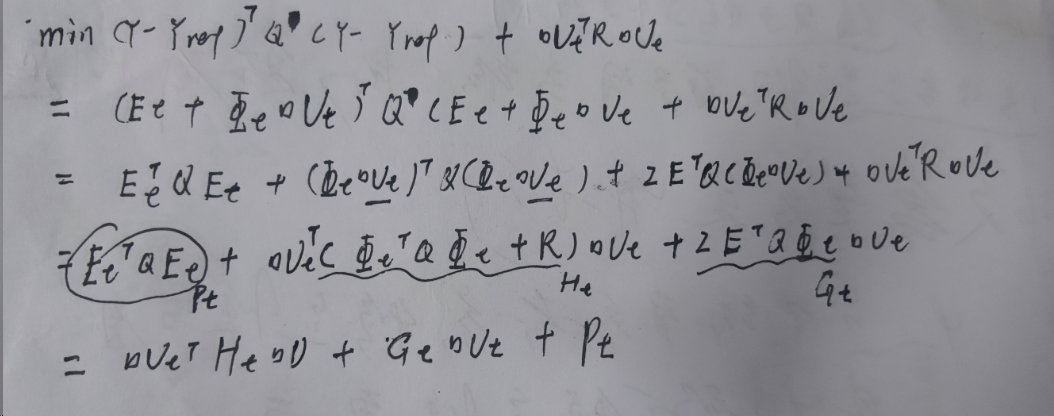 min (Y - Yref)ᵀ Q (Y - Yref) + ΔUtᵀ R ΔUt
= (Et + Φt ΔUt)ᵀ Q (Et + Φt ΔUt + ΔUtᵀ R ΔUt
= Etᵀ Q Et + (Φt ΔUt)ᵀ Q (Φt ΔUt) + 2 Eᵀ Q (Φt ΔUt) + ΔUtᵀ R ΔUt
= Etᵀ Q Et + ΔUtᵀ ( Φtᵀ Q Φt + R) ΔUt + 2 Eᵀ Q Φt ΔUt
Pt Ht Gt
= ΔUtᵀ Ht ΔU + Gt ΔUt + Pt